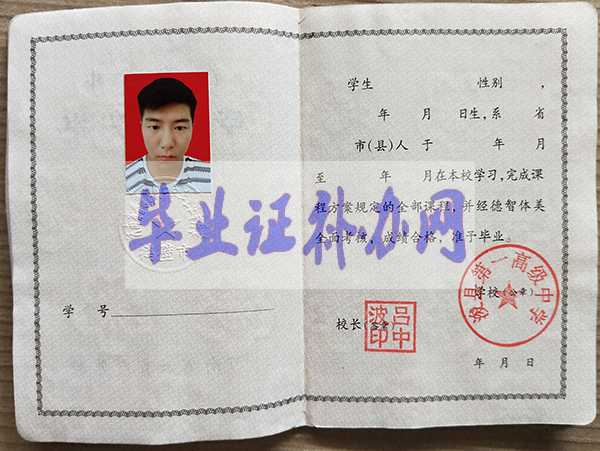 学生 性别 ，
年 月 日生，系 省
市(县)人 于 年 月
至 年 月在本校学习，完成课
程方案规定的全部课程，并经德智体美
全面考核，成绩合格，准予毕业。
毕业证补办网
学校(公章)
县第一高级中学
学 号
校长(签章)
吕中波印
年 月 日